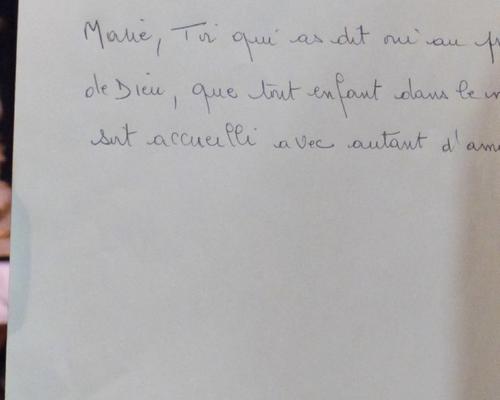 Marie, Toi qui as dit oui au
de Dieu, que tout enfant dans le
soit accueilli avec autant d'am